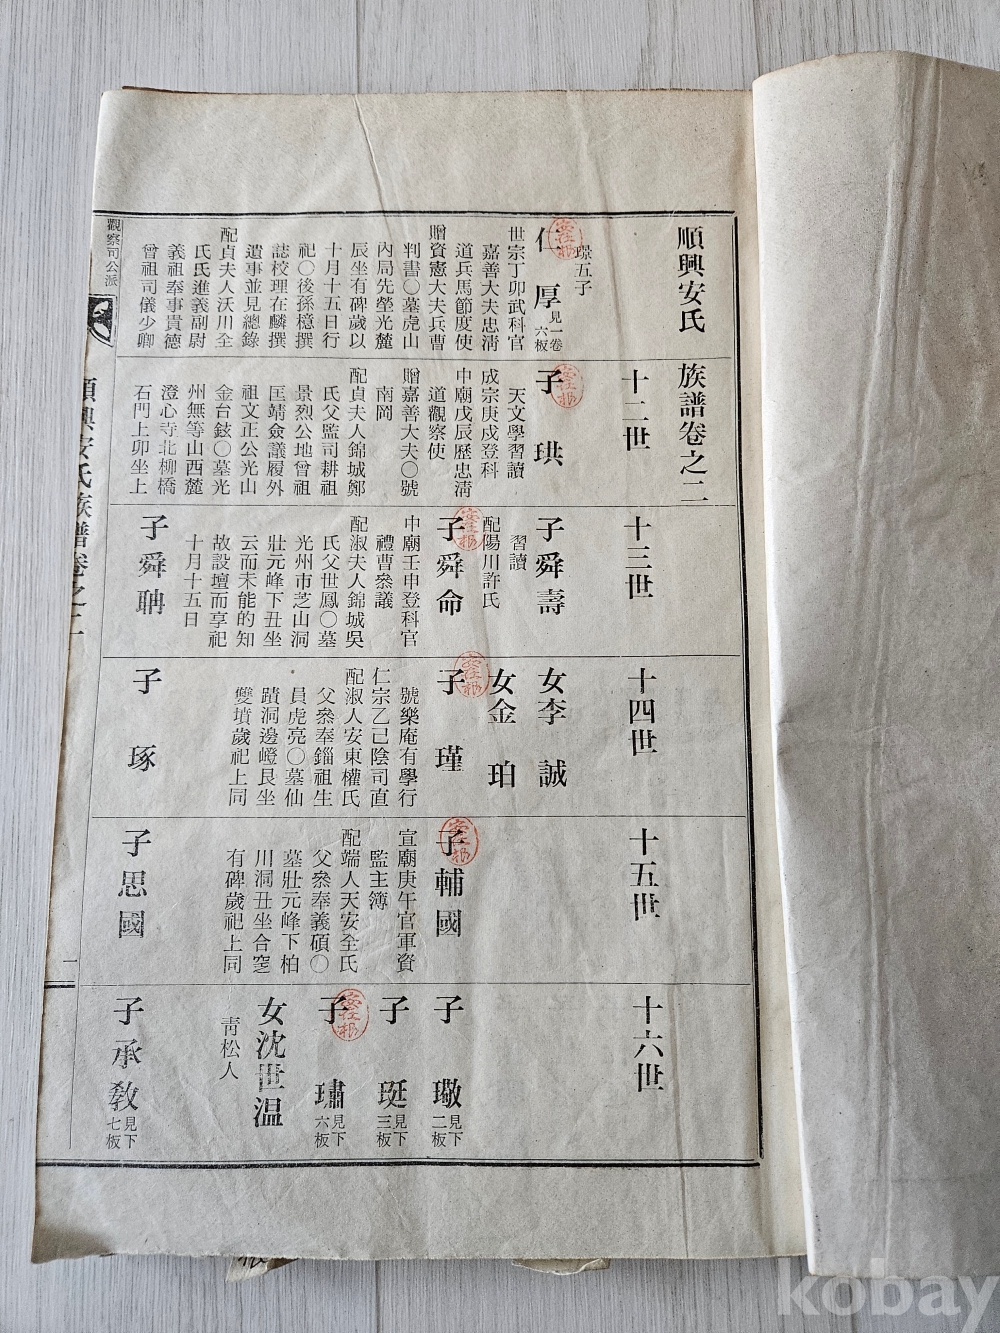 順興安氏 族譜卷之二
璟五子
仁厚 見一卷六板
世宗丁卯武科官
嘉善大夫忠淸
道兵馬節度使
贈資憲大夫兵曹
判書〇墓虎山
內局先塋光麓
辰坐有碑歲以
十月十五日行
祀〇後孫檍撰
誌校理在麟撰
遺事並見總錄
配貞夫人沃川全
氏氏進義副尉
義祖奉事貴德
曾祖司儀少卿
十二世
子珙
天文學習讀
成宗庚戍登科
中廟戊辰歷忠淸
道觀察使
贈嘉善大夫〇號
南岡
配貞夫人錦城鄭
氏父監司耕祖
景烈公地曾祖
匡靖僉議履外
祖文正公光山
金台鉉〇墓光
州無等山西麓
澄心寺北柳橋
石門上卯坐上
十三世
子舜壽
習讀
配陽川許氏
子舜命
中廟壬申登科官
禮曹叅議
配淑夫人錦城吳
氏父世鳳〇墓
光州市芝山洞
壯元峰下丑坐
云而未能的知
故設壇而享祀
十月十五日
子舜聃
十四世
女李誠
女金珀
子瑾
號樂庵有學行
仁宗乙己陰司直
配淑人安東權氏
父叅奉錙祖生
員虎亮〇墓仙
蹟洞邊嶝艮坐
雙墳歲祀上同
子琢
十五世
子輔國
宣廟庚午官軍資
監主簿
配端人天安全氏
父叅奉義碩〇
墓壯元峰下柏
川洞丑坐合窆
有碑歲祀上同
子思國
十六世
子璥 見下二板
子珽 見下三板
子璛 見下六板
女沈世温
靑松人
子承敎 見下七板
觀察司公派
順興安氏族譜卷之二
一
kobay